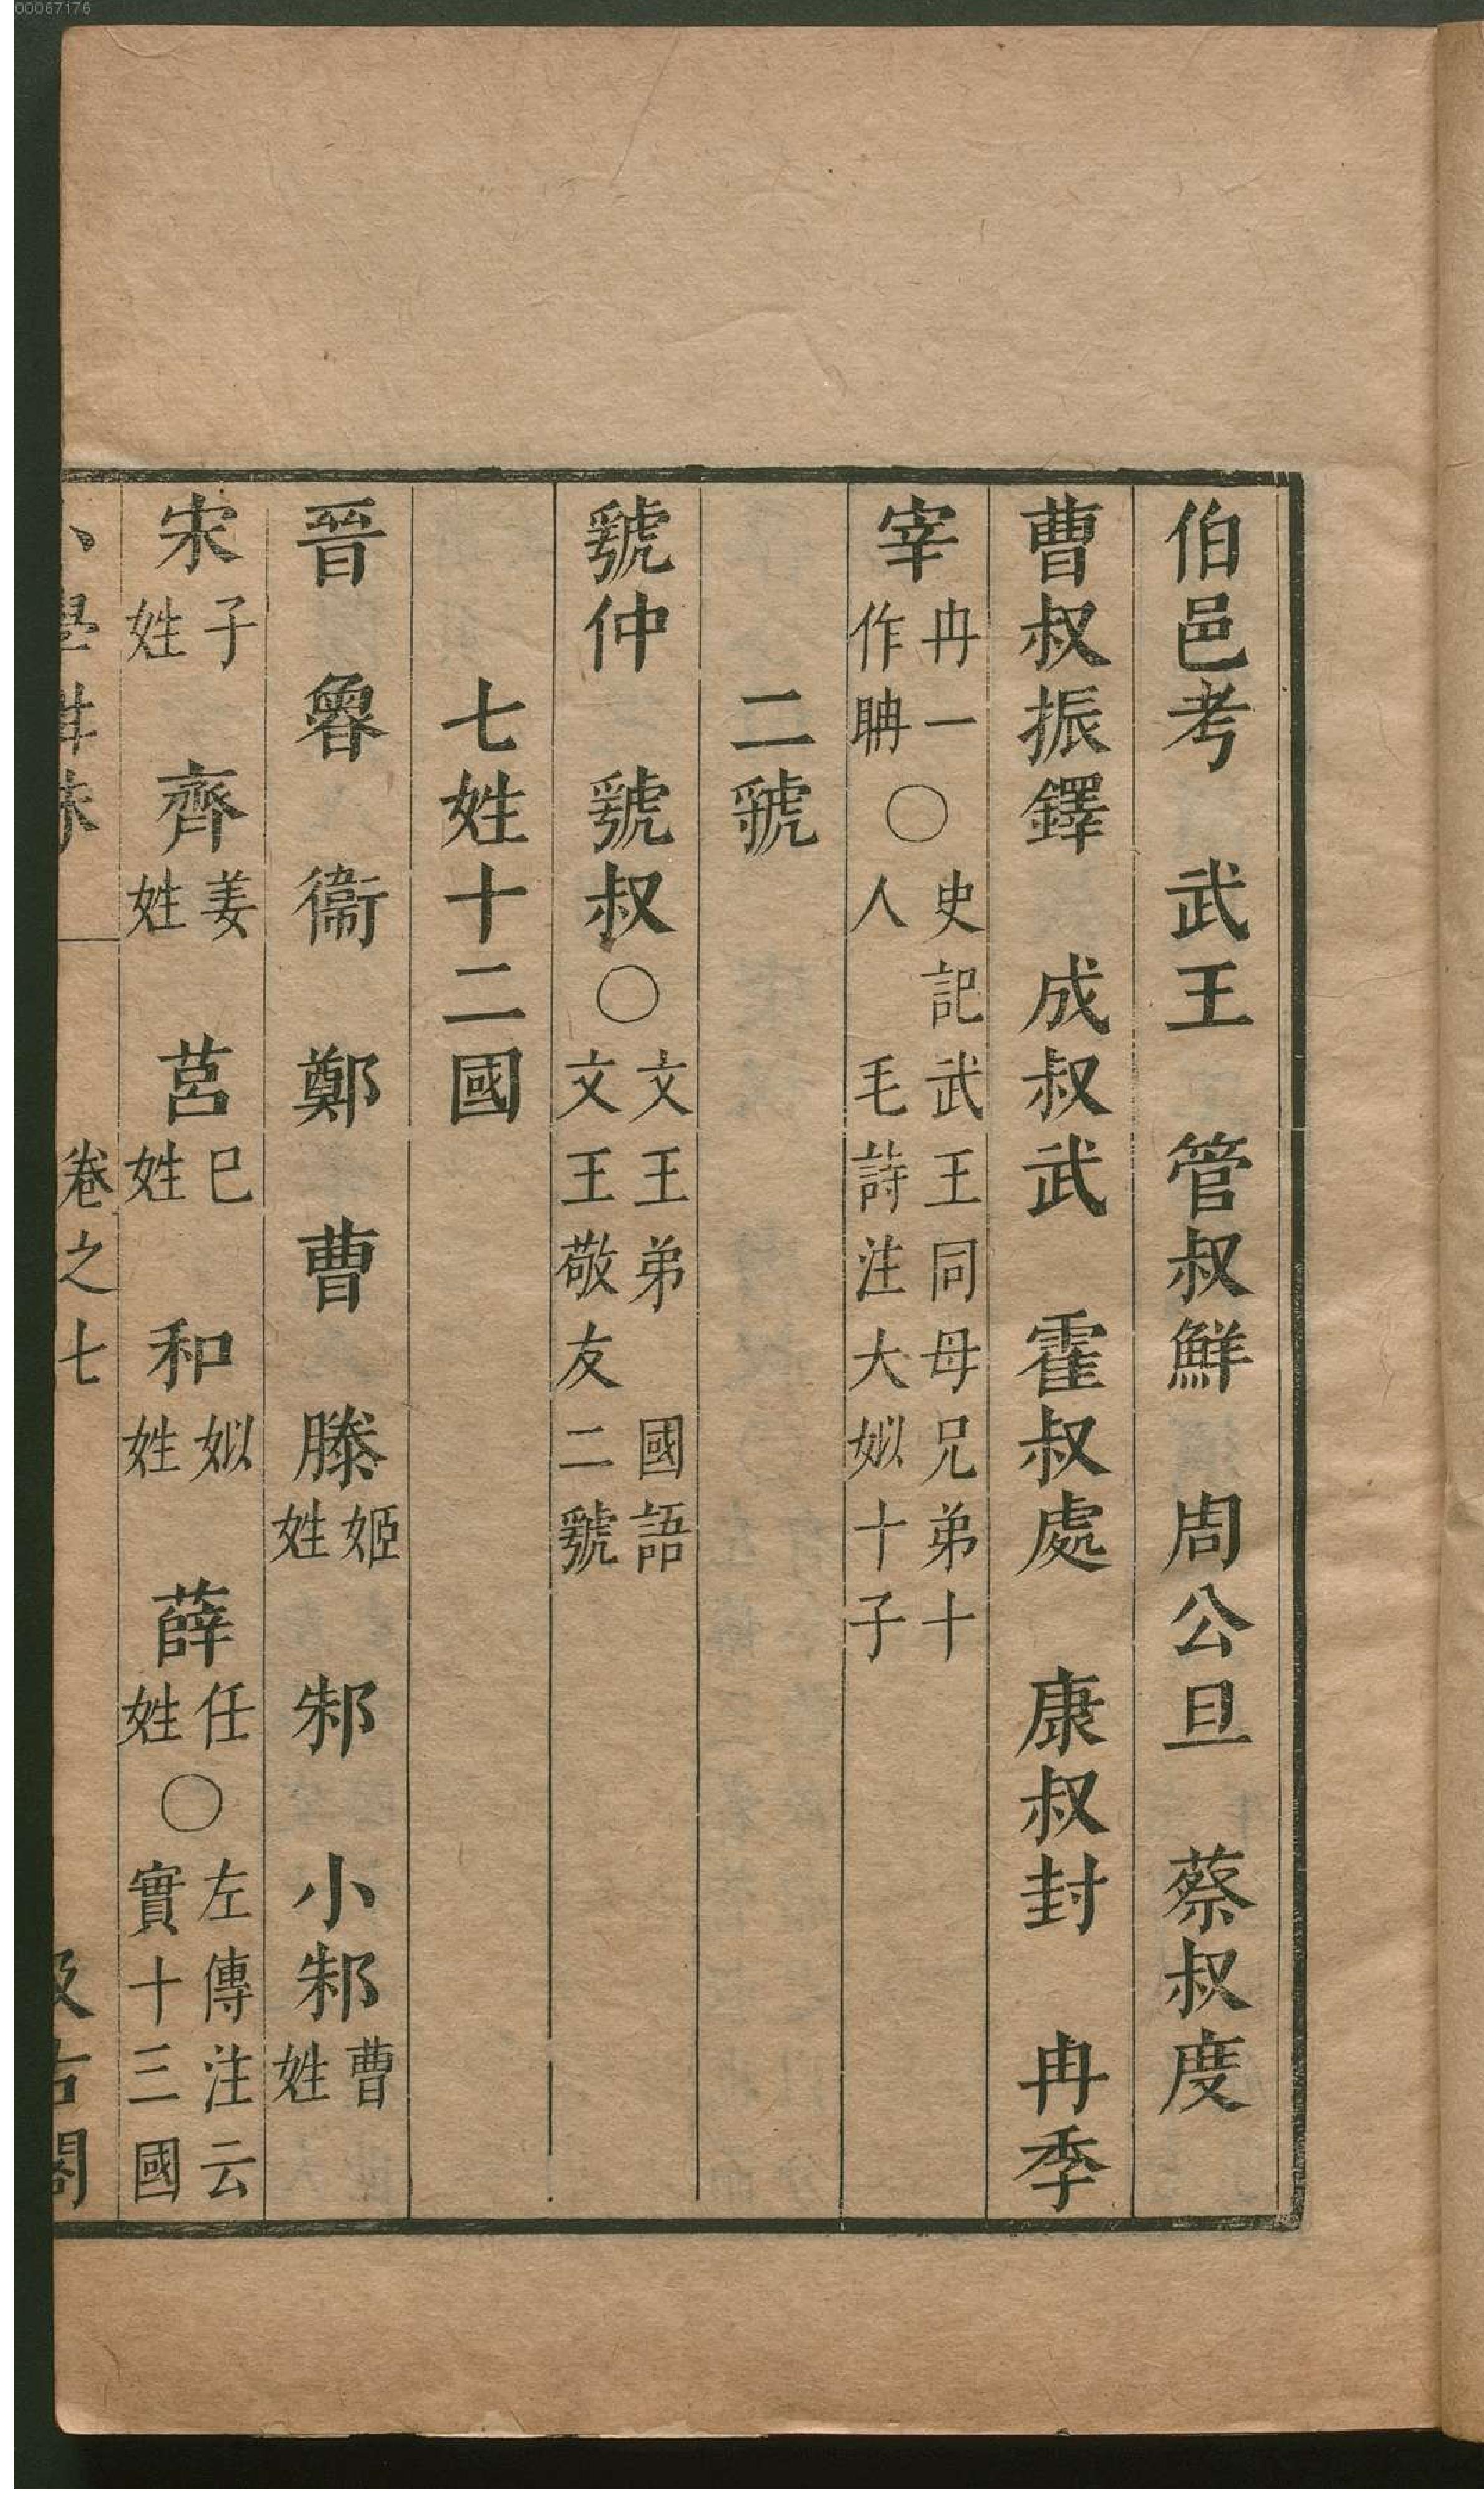 00067176
伯邑考　武王　管叔鮮　周公旦　蔡叔度
曹叔振鐸　成叔武　霍叔處　康叔封　冉季
宰冉一作聃○史記武王同母兄弟十人　毛詩注大姒十子
二虢
虢仲　虢叔○文王弟　國語文王敬友二虢
七姓十二國
晉　魯　衞　鄭　曹　滕姬姓　邾　小邾曹姓
宋子姓　齊姜姓　莒巳姓　杞姒姓　薛任姓○左傳注云實十三國
小學紺珠　卷之七　汲古閣